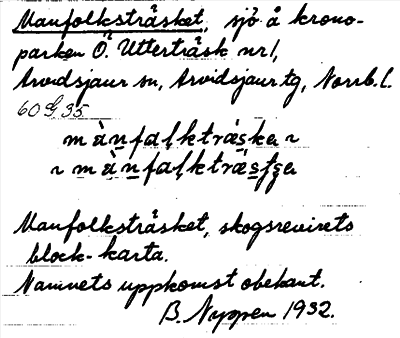 Manfolksträsket, sjö å krono-
parken Ö. Utterträsk nr 1,
Arvidsjaur sn, Arvidsjaur tg, Norrb. l.
60 G 35
màn̲fal̲ktrǽs̲ka ~
~ màn̲fal̲ktrǽs̲tga
Manfolksträsket, skogsrevirets
block-karta.
Namnets uppkomst obekant.
B. Nygren 1932.